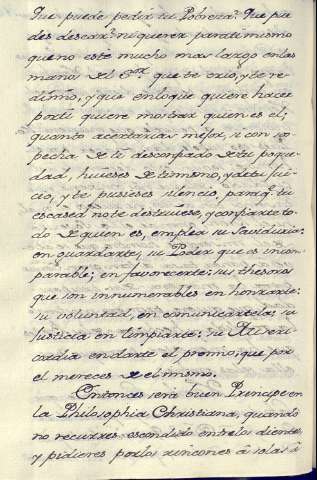 Que puede pedir tu Pobreza? Que pue
des desear? ni querer para ti mismo
que no esté mucho mas largo en las
manos del Sor que te crió, y te re
dimio, y que en lo que quiere hacer
por ti quiere mostrar quien es el;
quanto acertarias mejor, si con sos
pecha de ti desconfiado de tu poque
dad, huieses de ti mismo, y de tu jui-
cio, y te pusieses silencio, para q. tu
escased no te destruiese, y confiarte to
do de quien es, emplea su Saviduria:
en guardarte, su Poder que es incom
parable; en favorecerte: sus thesoros
que son innumerables en honrarte:
su voluntad, en comunicartela; su
Justicia en limpiarte: su Miseri
cordia en darte el premio, que por
el mereces de el mismo.
Entonces sera buen Principe en
la Philosophia Christiana, quando
no recurses escondido entre los dientes
y pidieres por los rincones á solas á